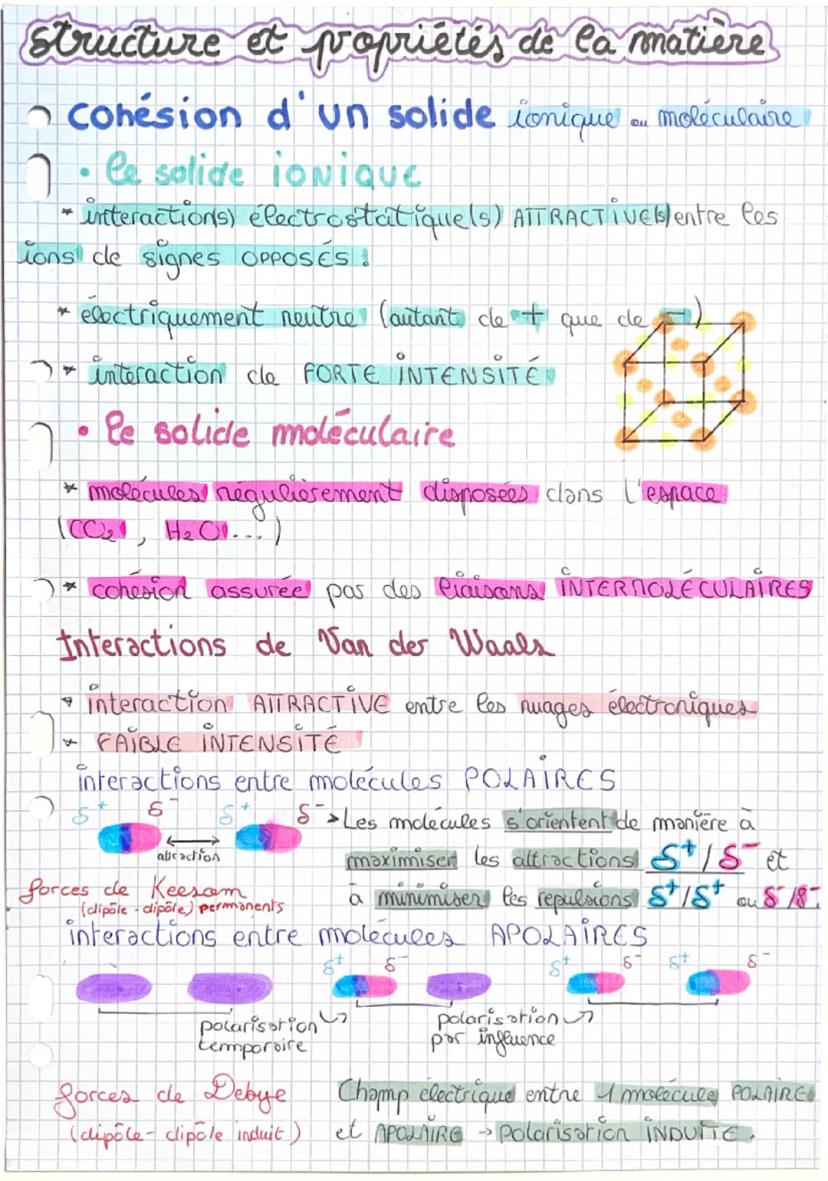 structure et propriétés de la matière
cohésion d'un solide ionique ou moléculaire
• le solide ionique
* interaction(s) électrostatique(s) ATTRACTIVE(s) entre les
ions de signes OPPOSÉS.
* électriquement neutre (autant de + que de -)
* interaction de FORTE INTENSITÉ
• le solide moléculaire
* molécules régulièrement disposées dans l'espace
(CO2, H2O...)
* cohésion assurée par des liaisons INTERMOLÉCULAIRES
Interactions de Van der Waals
* interaction ATTRACTIVE entre les nuages électroniques
* FAIBLE INTENSITÉ
interactions entre molécules POLAIRES
δ+ δ- δ+ δ-
attraction
→ Les molécules s'orientent de manière à
maximiser les attractions δ+/δ- et
à minimiser les repulsions δ+/δ+ ou δ-/δ-
forces de Keesom
(dipôle - dipôle) permanents
interactions entre molécules APOLAIRES
δ+ δ- δ+ δ- δ+ δ-
polarisation
temporaire
polarisation
par influence
forces de Debye
(dipôle - dipôle induit)
Champ électrique entre 1 molécule POLAIRE
et APOLAIRE → Polarisation INDUITE.